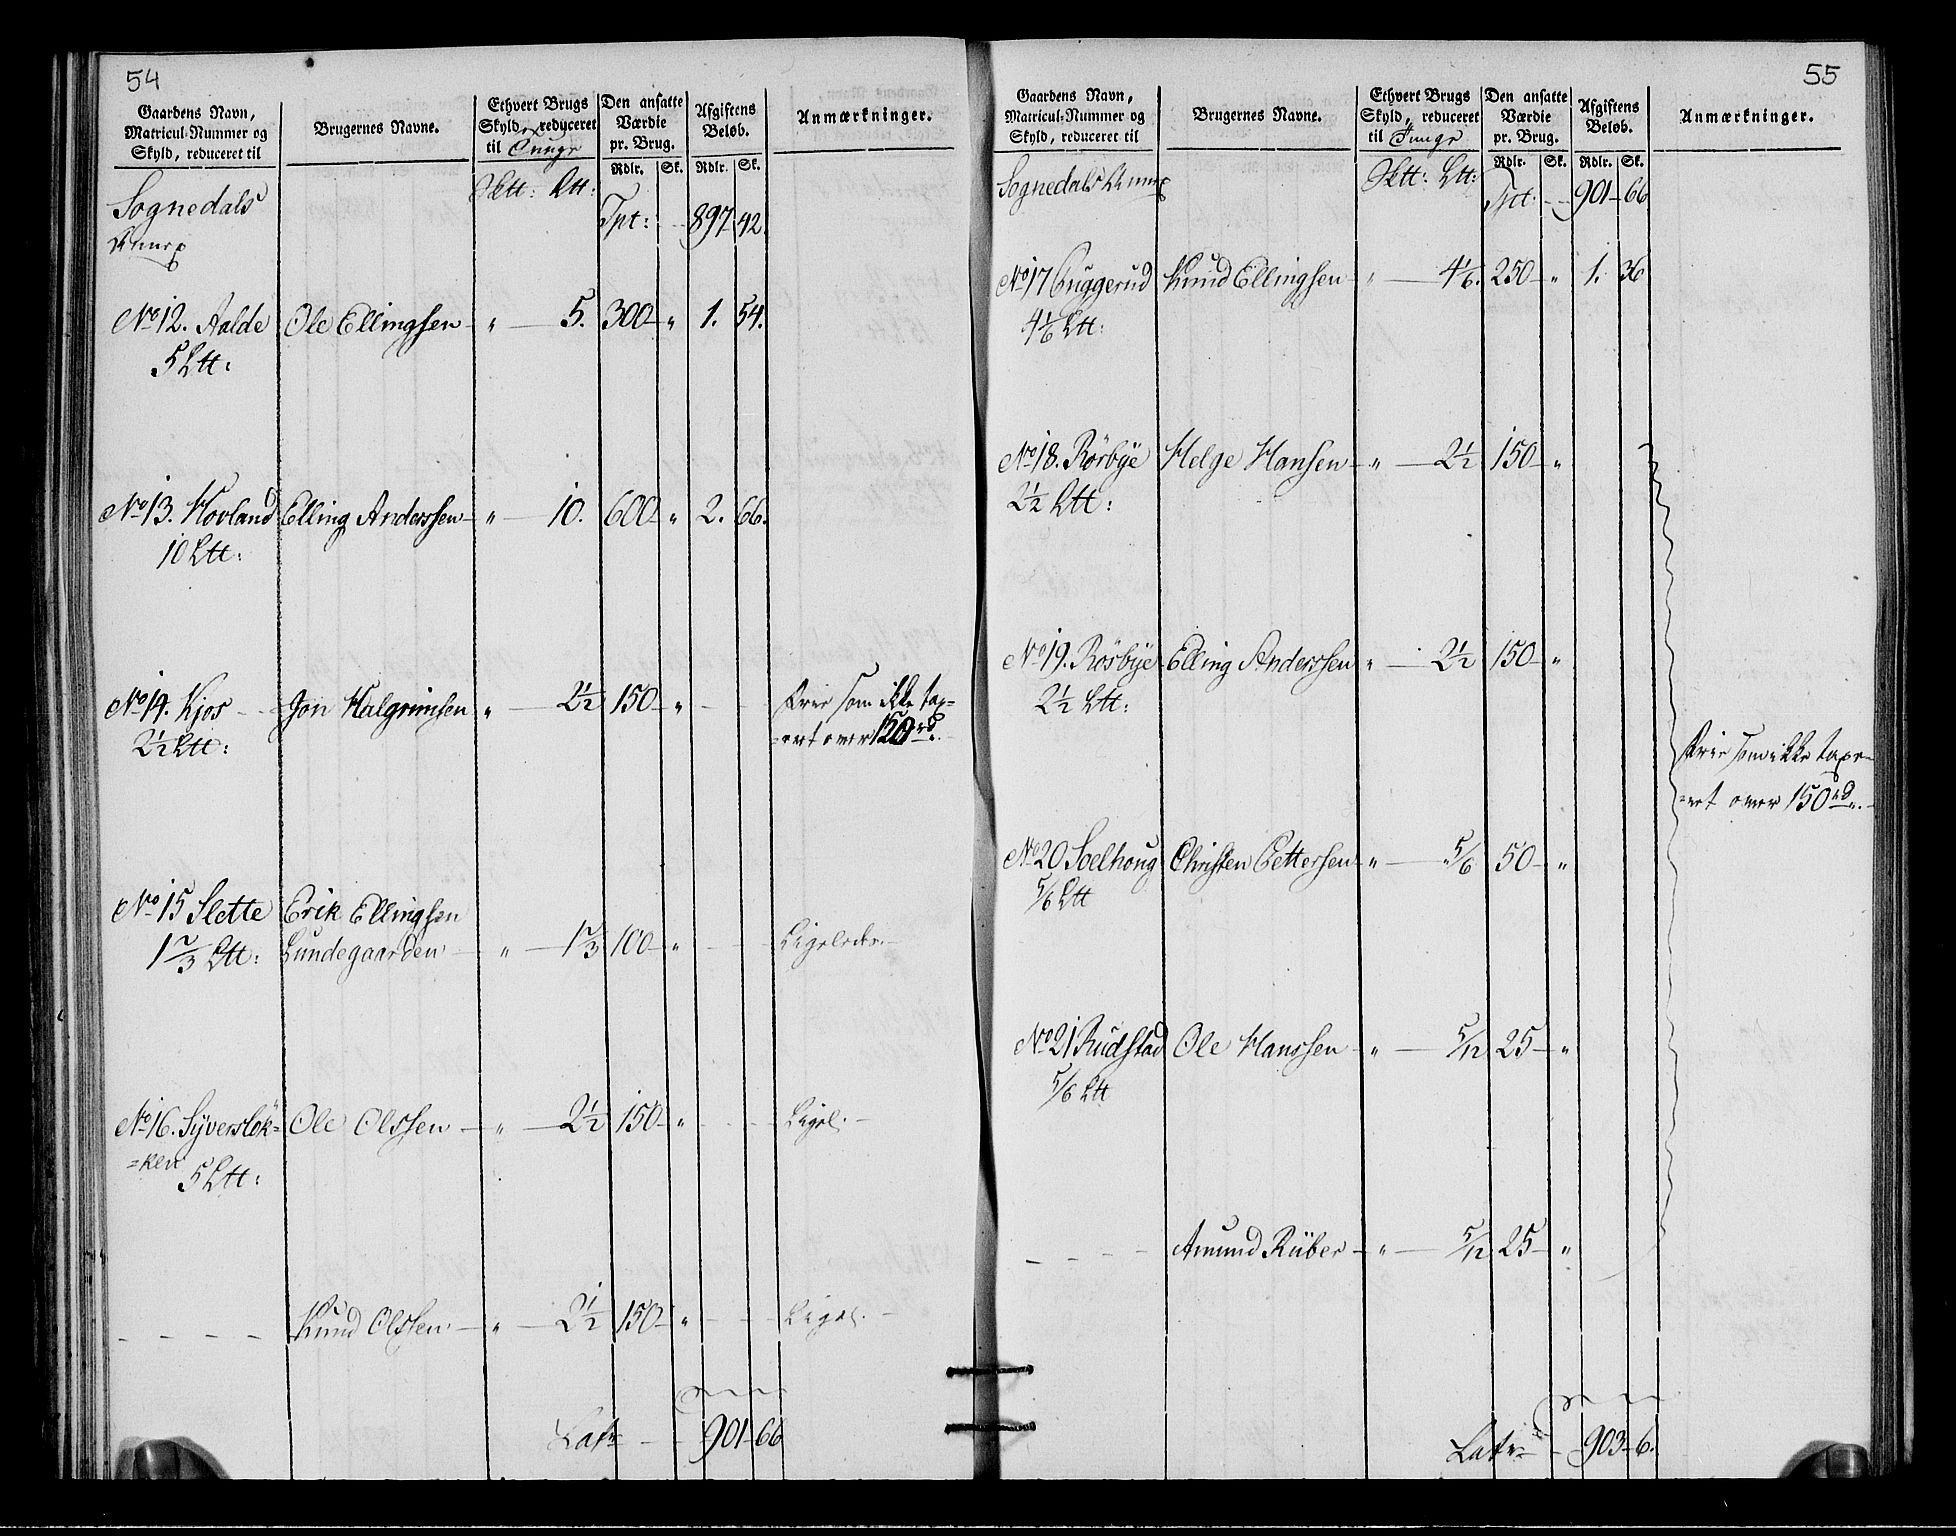 54
Gaardens Navn,
Matricul-Nummer og
Skyld, reduceret til
Brugernes Navne.
Ethvert Brugs
Skyld, reduceret
til Tunge
Den ansatte
Værdie
pr. Brug.
Rdlr. Sk.
Afgiftens
Beløb.
Rdlr. Sk.
Anmærkninger.
Sognedals
Ltt:
Tpt: 897 42.
No 12. Aalde Ole Ellingsen " 5. 300 " 1. 54.
5 Ltt:
No 13. Hovland Elling Anderssen " 10. 600 " 2. 66.
10 Ltt:
No 14. Kjos Jon Halgrimsen " 2½ 150 " Frie som ikke tax=
2½ Ltt: =ert over 150 rd.
No 15 Slette Erik Ellingsen
1⅔ Ltt: Lundegaarden " 1⅔ 100 " Ligeledes.
No 16. Syversløk= Ole Olssen " 2½ 150 " Ligel.
=ken 5 Ltt:
Knud Olssen " 2½ 150 " Ligel.
Latr 901 66
55
Gaardens Navn,
Matricul-Nummer og
Skyld, reduceret til
Brugernes Navne.
Ethvert Brugs
Skyld, reduceret
til Tunge
Den ansatte
Værdie
pr. Brug.
Rdlr. Sk.
Afgiftens
Beløb.
Rdlr. Sk.
Anmærkninger.
Sognedals Ltt: 901 66
No 17 Guggerud Knud Ellingsen " 4⅙. 250 " 1. 36
4⅙ Ltt:
No 18. Rörbye Helge Hansen " 2½ 150 "
2½ Ltt:
No 19. Rösbye Elling Anderssen " 2½ 150 "
2½ Ltt:
Frie som ikke taxe=
=ret over 150 rd.
No 20 Soelhoug Christen Pettersen " 5/6 50 "
5/6 Ltt
No 21 Rudstad Ole Hanssen " 5/12 25 "
5/6 Ltt
Amund Rüber " 5/12 25 "
Latr 903 6.